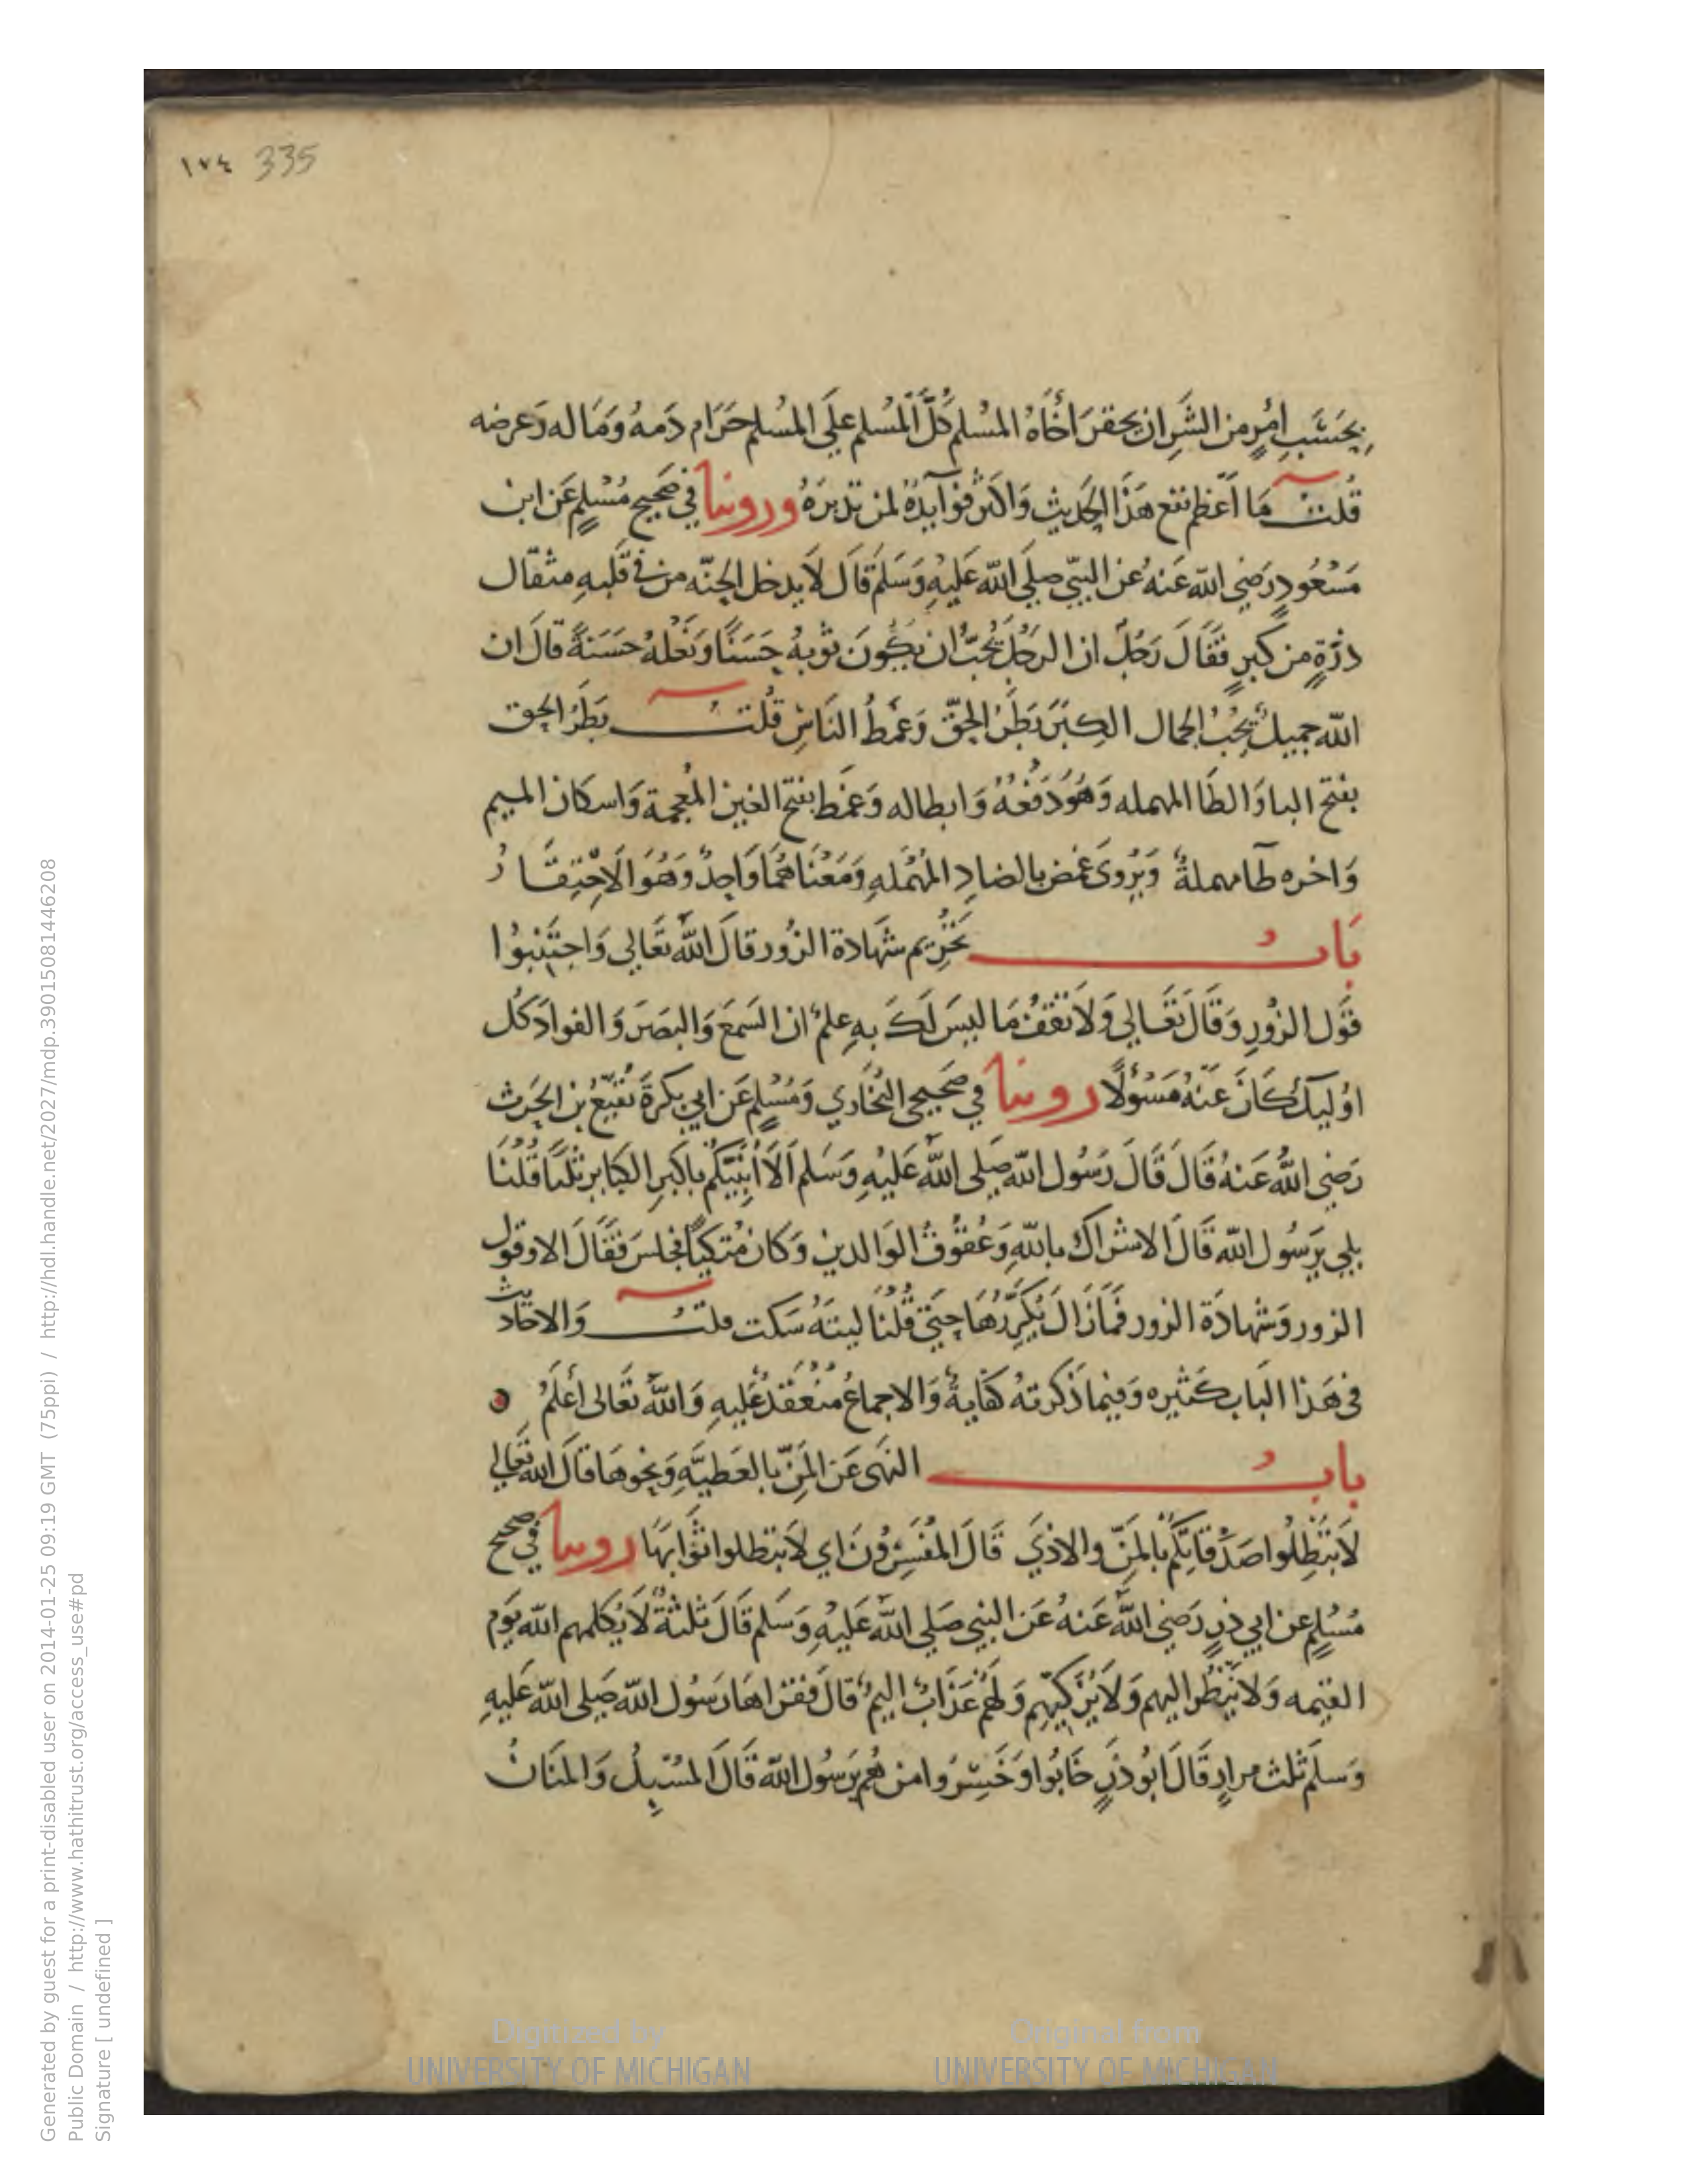 ١٧٤ 335
بِحَسْبِ امْرٍ من الشَرِ ان يحقرَ اخَاهُ المسْلم كُلَّ المُسْلم علَى المُسْلمِ حَرَام دَمهُ وَمَاله وَعرضه
قُلت مَا اعْظم نفع هَذَا الحَديث وَاكثر فوَايدهُ لمن تدبرهُ وروينا في صَحِيح مُسْلمٍ عَن ابن
مَسْعُودٍ رَضِي الله عَنهُ عن النبيّ صلي الله عَليهِ وَسَلم قَال لَا يدخل الجنّه من في قَلبهِ مثقال
ذرّةٍ من كبرٍ فقَالَ رَجُلٌ ان الرجُلَ يُحبُّ ان يكُونَ ثوبهُ حَسَنًا وَنَعْلهُ حَسَنَةً قال ان
الله جميلٌ يُحبُّ الجمال الكِبْرُ بَطَرُ الحَقّ وَغَمْطُ النَاسِ قُلت بَطَرُ الحق
بفتح البا وَالطَا المهمله وَهُوَ دَفعُهُ وَابطاله وَغَمْط بفتح الغين المُعْجمة وَاسكان الميم
وَاخره طَا مهملةٌ وَيُروىَ غمض بالضادِ المُهْمَلهِ وَمَعْنَاهُمَا وَاحِدٌ وَهُوَ الاحْتِقَارُ
بَابُ تحْرِيم شَهادة الزُور قالَ اللهُ تَعَالي وَاجتَنِبوُا
قَوَل الزُورِ وَقَالَ تَعَالي وَلَا تَقْفُ مَا ليسَ لَكَ بهِ علمٌ ان السَمعَ وَالبصَرَ وَالفوادَ كُل
اوُليكَ كَانَ عَنهُ مَسْوُلًا روينا في صَحِيحي البُخَاري وَمُسْلمٍ عَن ابي بكرةَ نُفَيْعُ بن الحَرث
رَضِي اللهُ عَنهُ قَالَ قَالَ رَسُول الله صَلي اللهُ عَليهِ وَسَلم اَلَا اُنَبّيكُم باكبرِ الكبَاير ثلثًا قُلْنَا
بلي يَرسُول الله قَالَ الاشرَاك بالله وَعُقوُقُ الوَالدين وَكَان مُتكيًا فجلسَ فقَالَ الا وقول
الزور وَشَهادَة الزور فمَازَالَ يُكَرّرُهَا حَتي قُلْنَا ليتهُ سَكت قلت وَالاحَاديث
في هَذا البَاب كَثيره وَفيمَا ذكرتهُ كفَايةٌ وَالاجماعُ مُنْعَقِدٌ عَليهِ وَاللهُ تَعَالى اَعْلَمُ
بابُ النهَى عَن المَنّ بالعَطيَّهِ وَنحوهَا قَالَ الله تعَالي
لَا تبْطِلُوا صَدَقَاتِكُم بالمَنّ والاذَي قَالَ المُفسِرُونَ اي لَا تبطلوا ثوَابهَا روينا في صحيح
مُسْلمٍ عن ابي ذرٍ رَضِي اللهُ عَنهُ عَن النبي صَلي اللهُ عَليهِ وَسَلم قَالَ ثلثةٌ لَا يُكلمهم الله يَوم
القيمه وَلَا يَنْظُر اليهم وَلَا يُزَكيّهِم وَلَهُم عَذَابٌ اليمٌ قالَ فقراهَا رَسُول الله صَلى الله عَليهِ
وَسلم ثلث مرارٍ قَالَ ابُو ذرٍ خَابُوا وَخَسِرُوا من هُم يَرسُول الله قَالَ المسْبِلُ وَالمنَانُ
Generated by guest for a print-disabled user on 2014-01-25 09:19 GMT (75ppi) / http://hdl.handle.net/2027/mdp.39015081446208
Public Domain / http://www.hathitrust.org/access_use#pd
Signature [ undefined ]
Digitized by UNIVERSITY OF MICHIGAN
Original from UNIVERSITY OF MICHIGAN